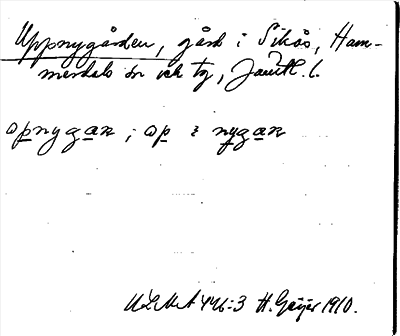 Uppnygården, gård i Sikås, Ham-
merdals sn och tg, Jämtl. l.
opnygan, op i nygan
ULMA 446:3 H. Geijer 1910.